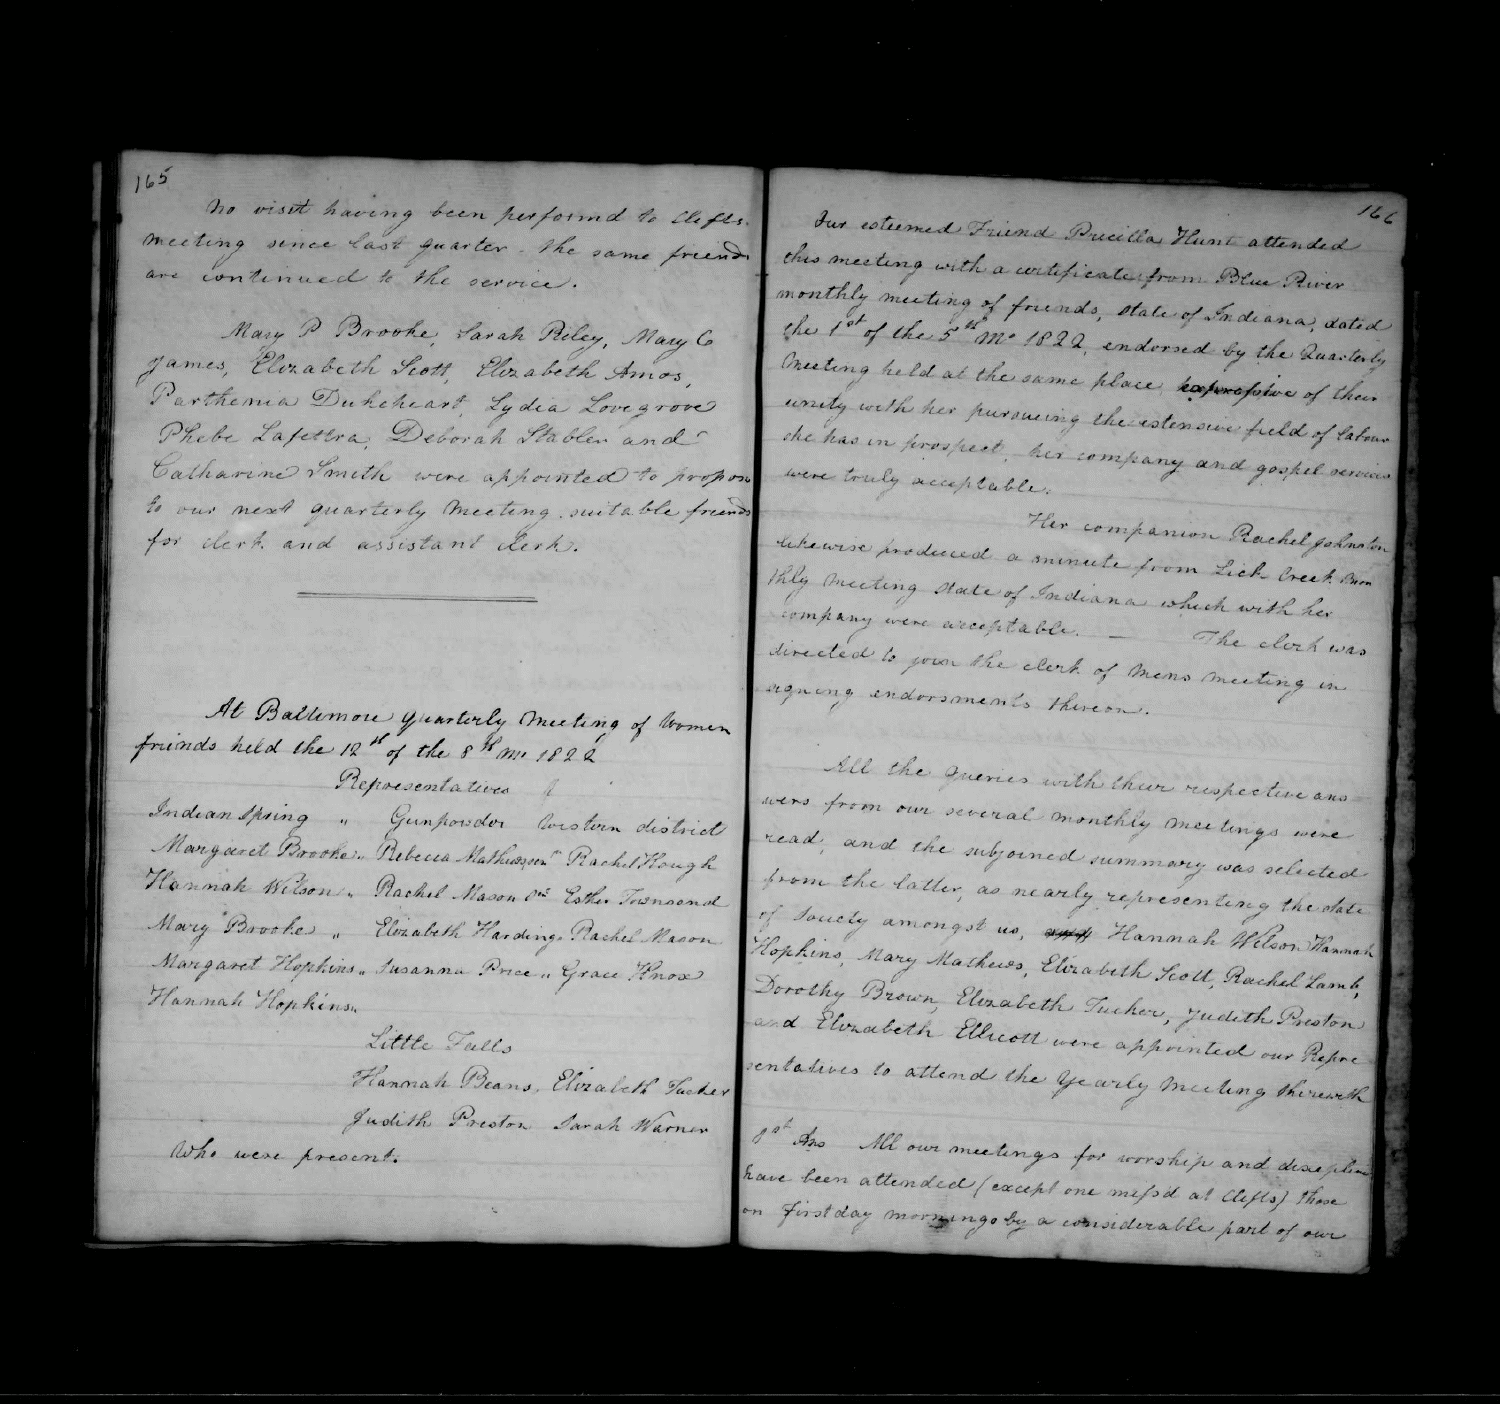 165
No visit having been performd to Clifts
meeting since last quarter the same friends
are continued to the service.
Mary P Brooke, Sarah Riley, Mary C
James, Elizabeth Scott, Elizabeth Amos,
Parthenia Dukeheart, Lydia Lovegrove
Phebe Lafettra, Deborah Stabler and
Catharine Smith were appointed to propose
to our next quarterly meeting suitable friends
for clerk and assistant clerk.
At Baltimore quarterly Meeting of Women
friends held the 12th of the 8th mo 1822
Representatives
Indian Spring " Gunpowder Western district
Margaret Brooke " Rebecca Mathews " Rachel Hough
Hannah Wilson " Rachel Mason Esther Townsend
Mary Brooke " Elizabeth Harding Rachel Mason
Margaret Hopkins " Susanna Price " Grace Knox
Hannah Hopkins "
Little Falls
Hannah Beans, Elizabeth Tucker
Judith Preston Sarah Warner
Who were present.
166
Our esteemed Friend Pricilla Hunt attended
this meeting with a certificate from Blue River
monthly meeting of friends, state of Indiana, dated
the 1st of the 5th Mo 1822, endorsed by the Quarterly
Meeting held at the same place expressive of their
unity with her pursueing the extensive field of labour
she has in prospect, her company and gospel services
were truly acceptable.
Her companion Rachel Johnston
likewise produced a minute from Lick Creek Mon
thly Meeting state of Indiana which with her
company were acceptable. — The clerk was
directed to join the clerk of mens meeting in
signing endorsments thereon.
All the Queries with their respective ans
wers from our several monthly meetings were
read, and the subjoined summary was selected
from the latter, as nearly representing the state
of society amongst us, Hannah Wilson Hannah
Hopkins, Mary Mathews, Elizabeth Scott, Rachel Lamb,
Dorothy Brown, Elizabeth Tucker, Judith Preston
and Elizabeth Ellicott were appointed our Repre
sentatives to attend the Yearly Meeting therewith
1st Ans All our meetings for worship and discipline
have been attended (except one miss'd at Clifts) those
on first day mornings by a considerable part of our